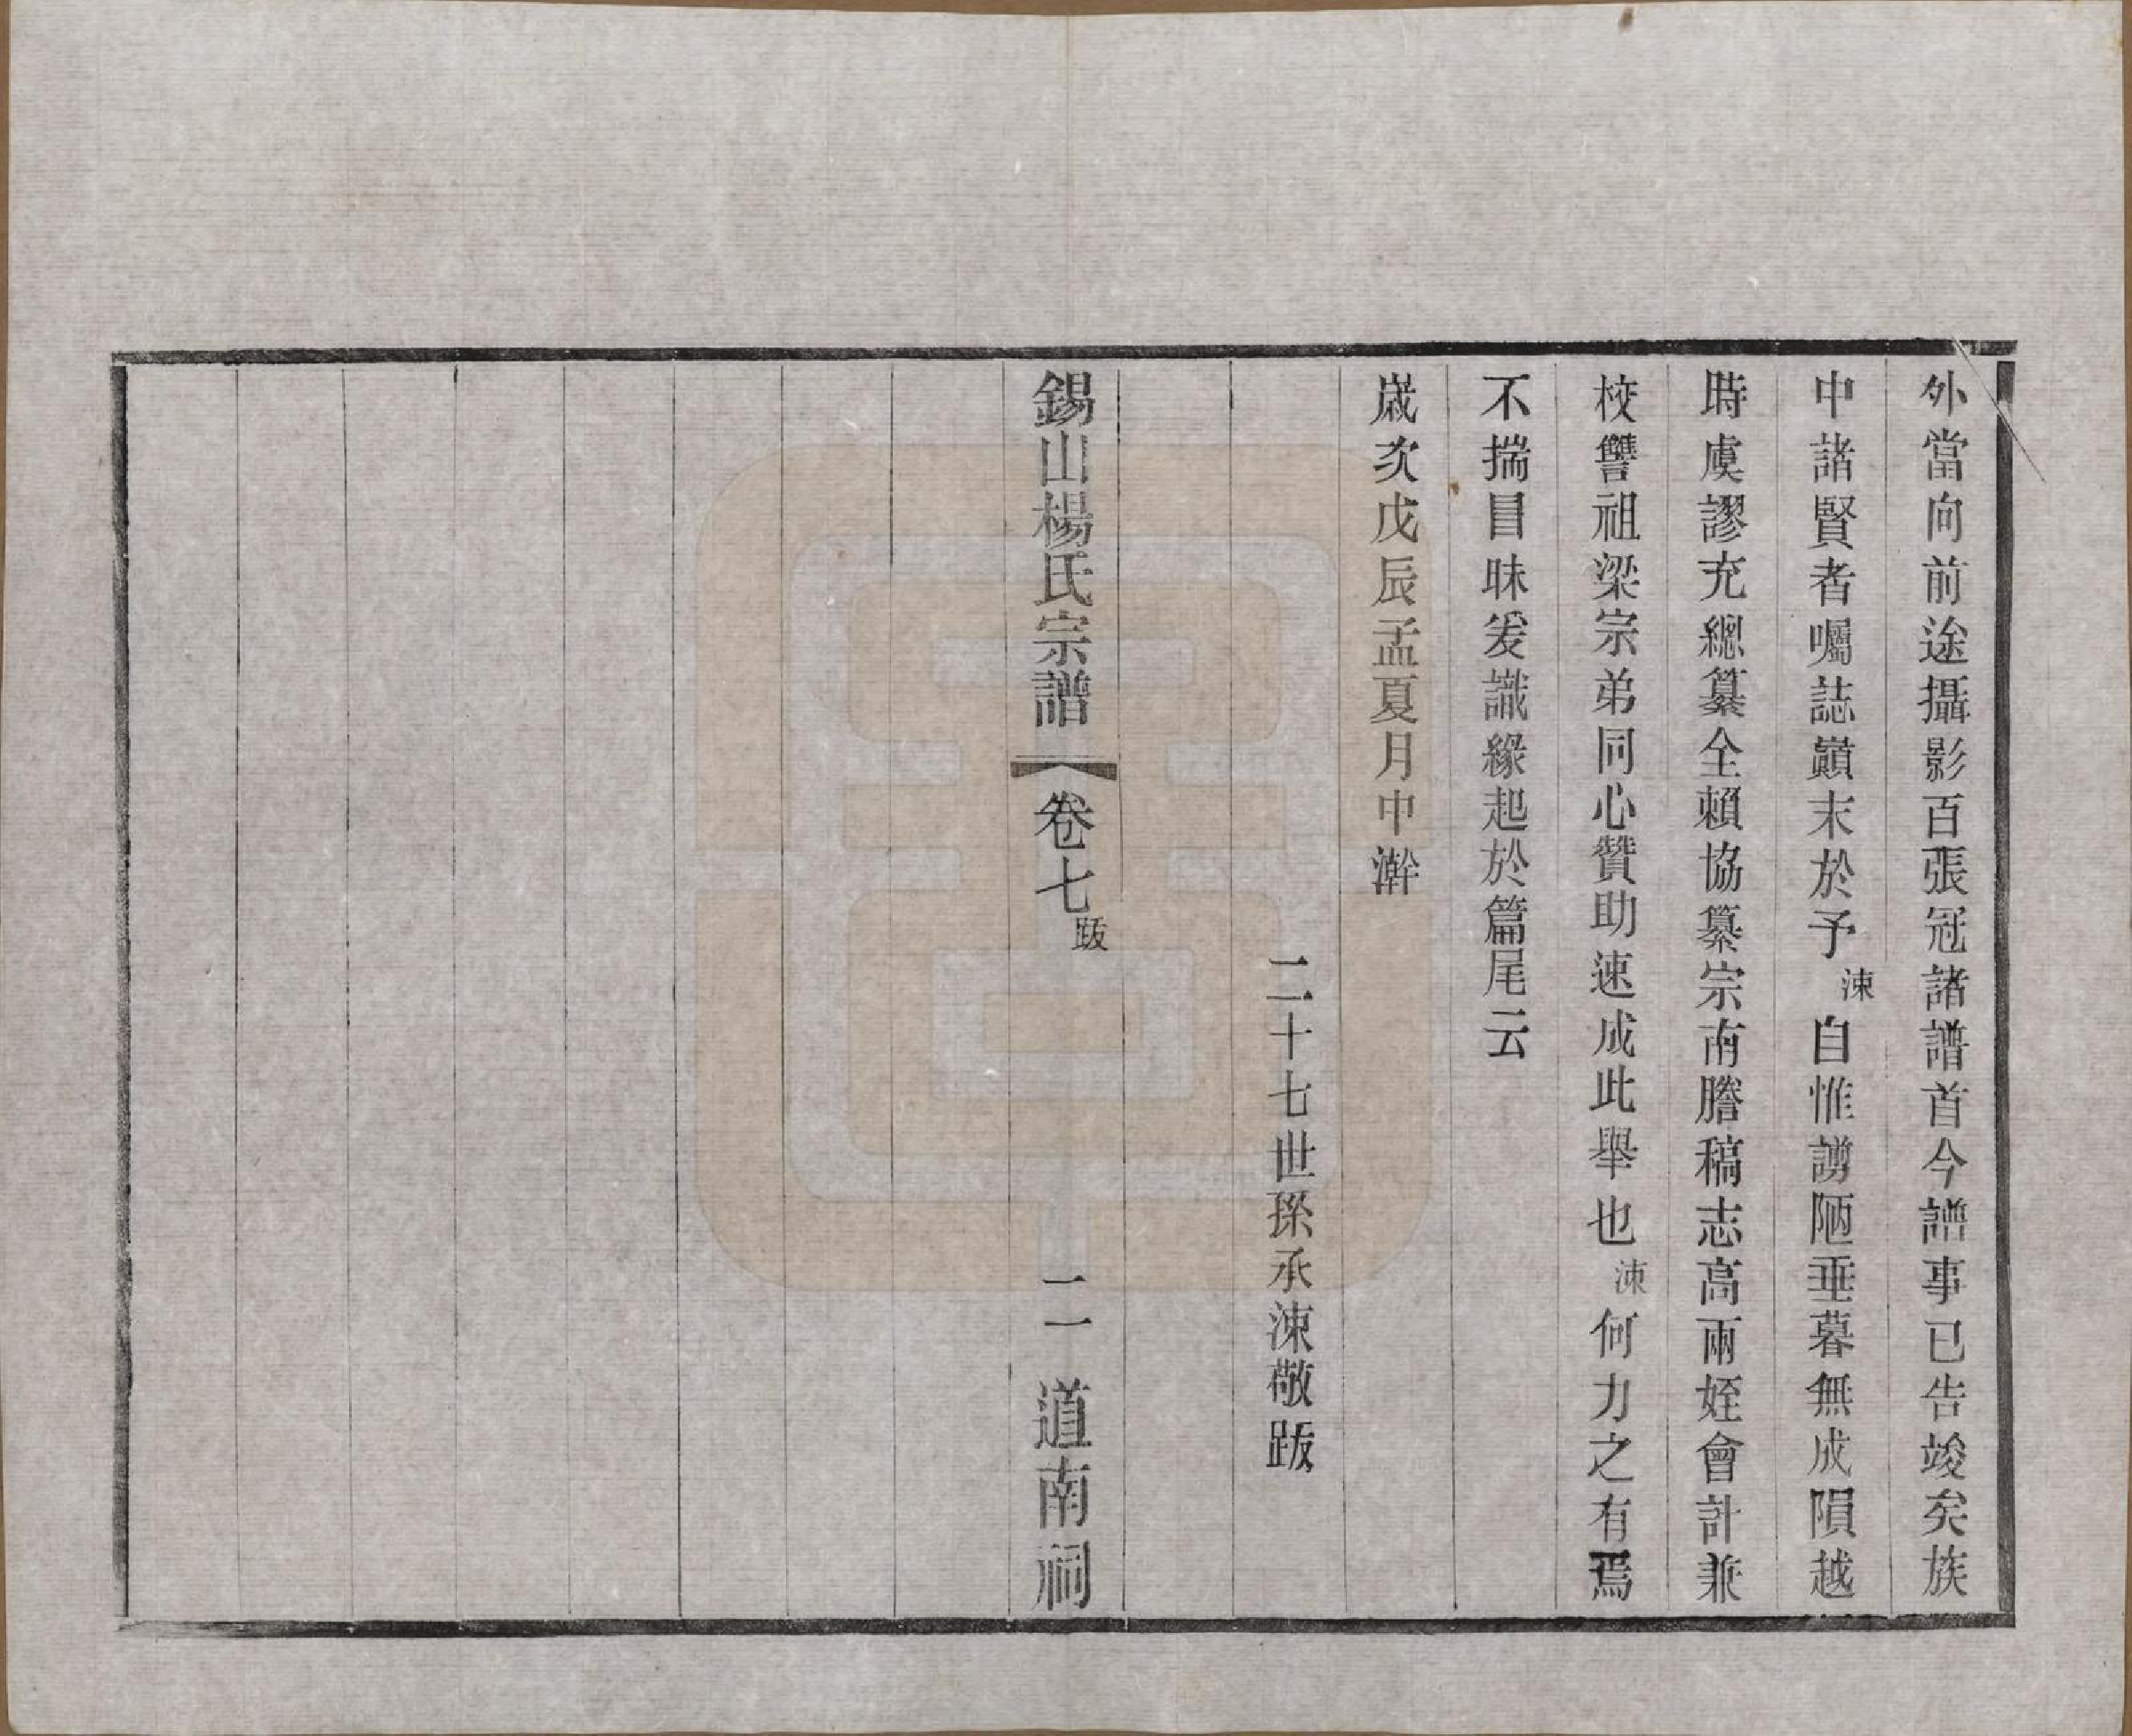 外當向前途攝影百張冠諸譜首今譜事已告竣矣族
中諸賢者囑誌巓末於予涑自惟謭陋垂暮無成隕越
時虞謬充總纂全賴協纂宗南謄稿志高兩姪會計兼
校讐祖梁宗弟同心贊助速成此舉也涑何力之有焉
不揣冒昧爰識緣起於篇尾云
歲次戊辰孟夏月中澣
二十七世孫承涑敬跋
錫山楊氏宗譜 卷七 跋 二 道南祠